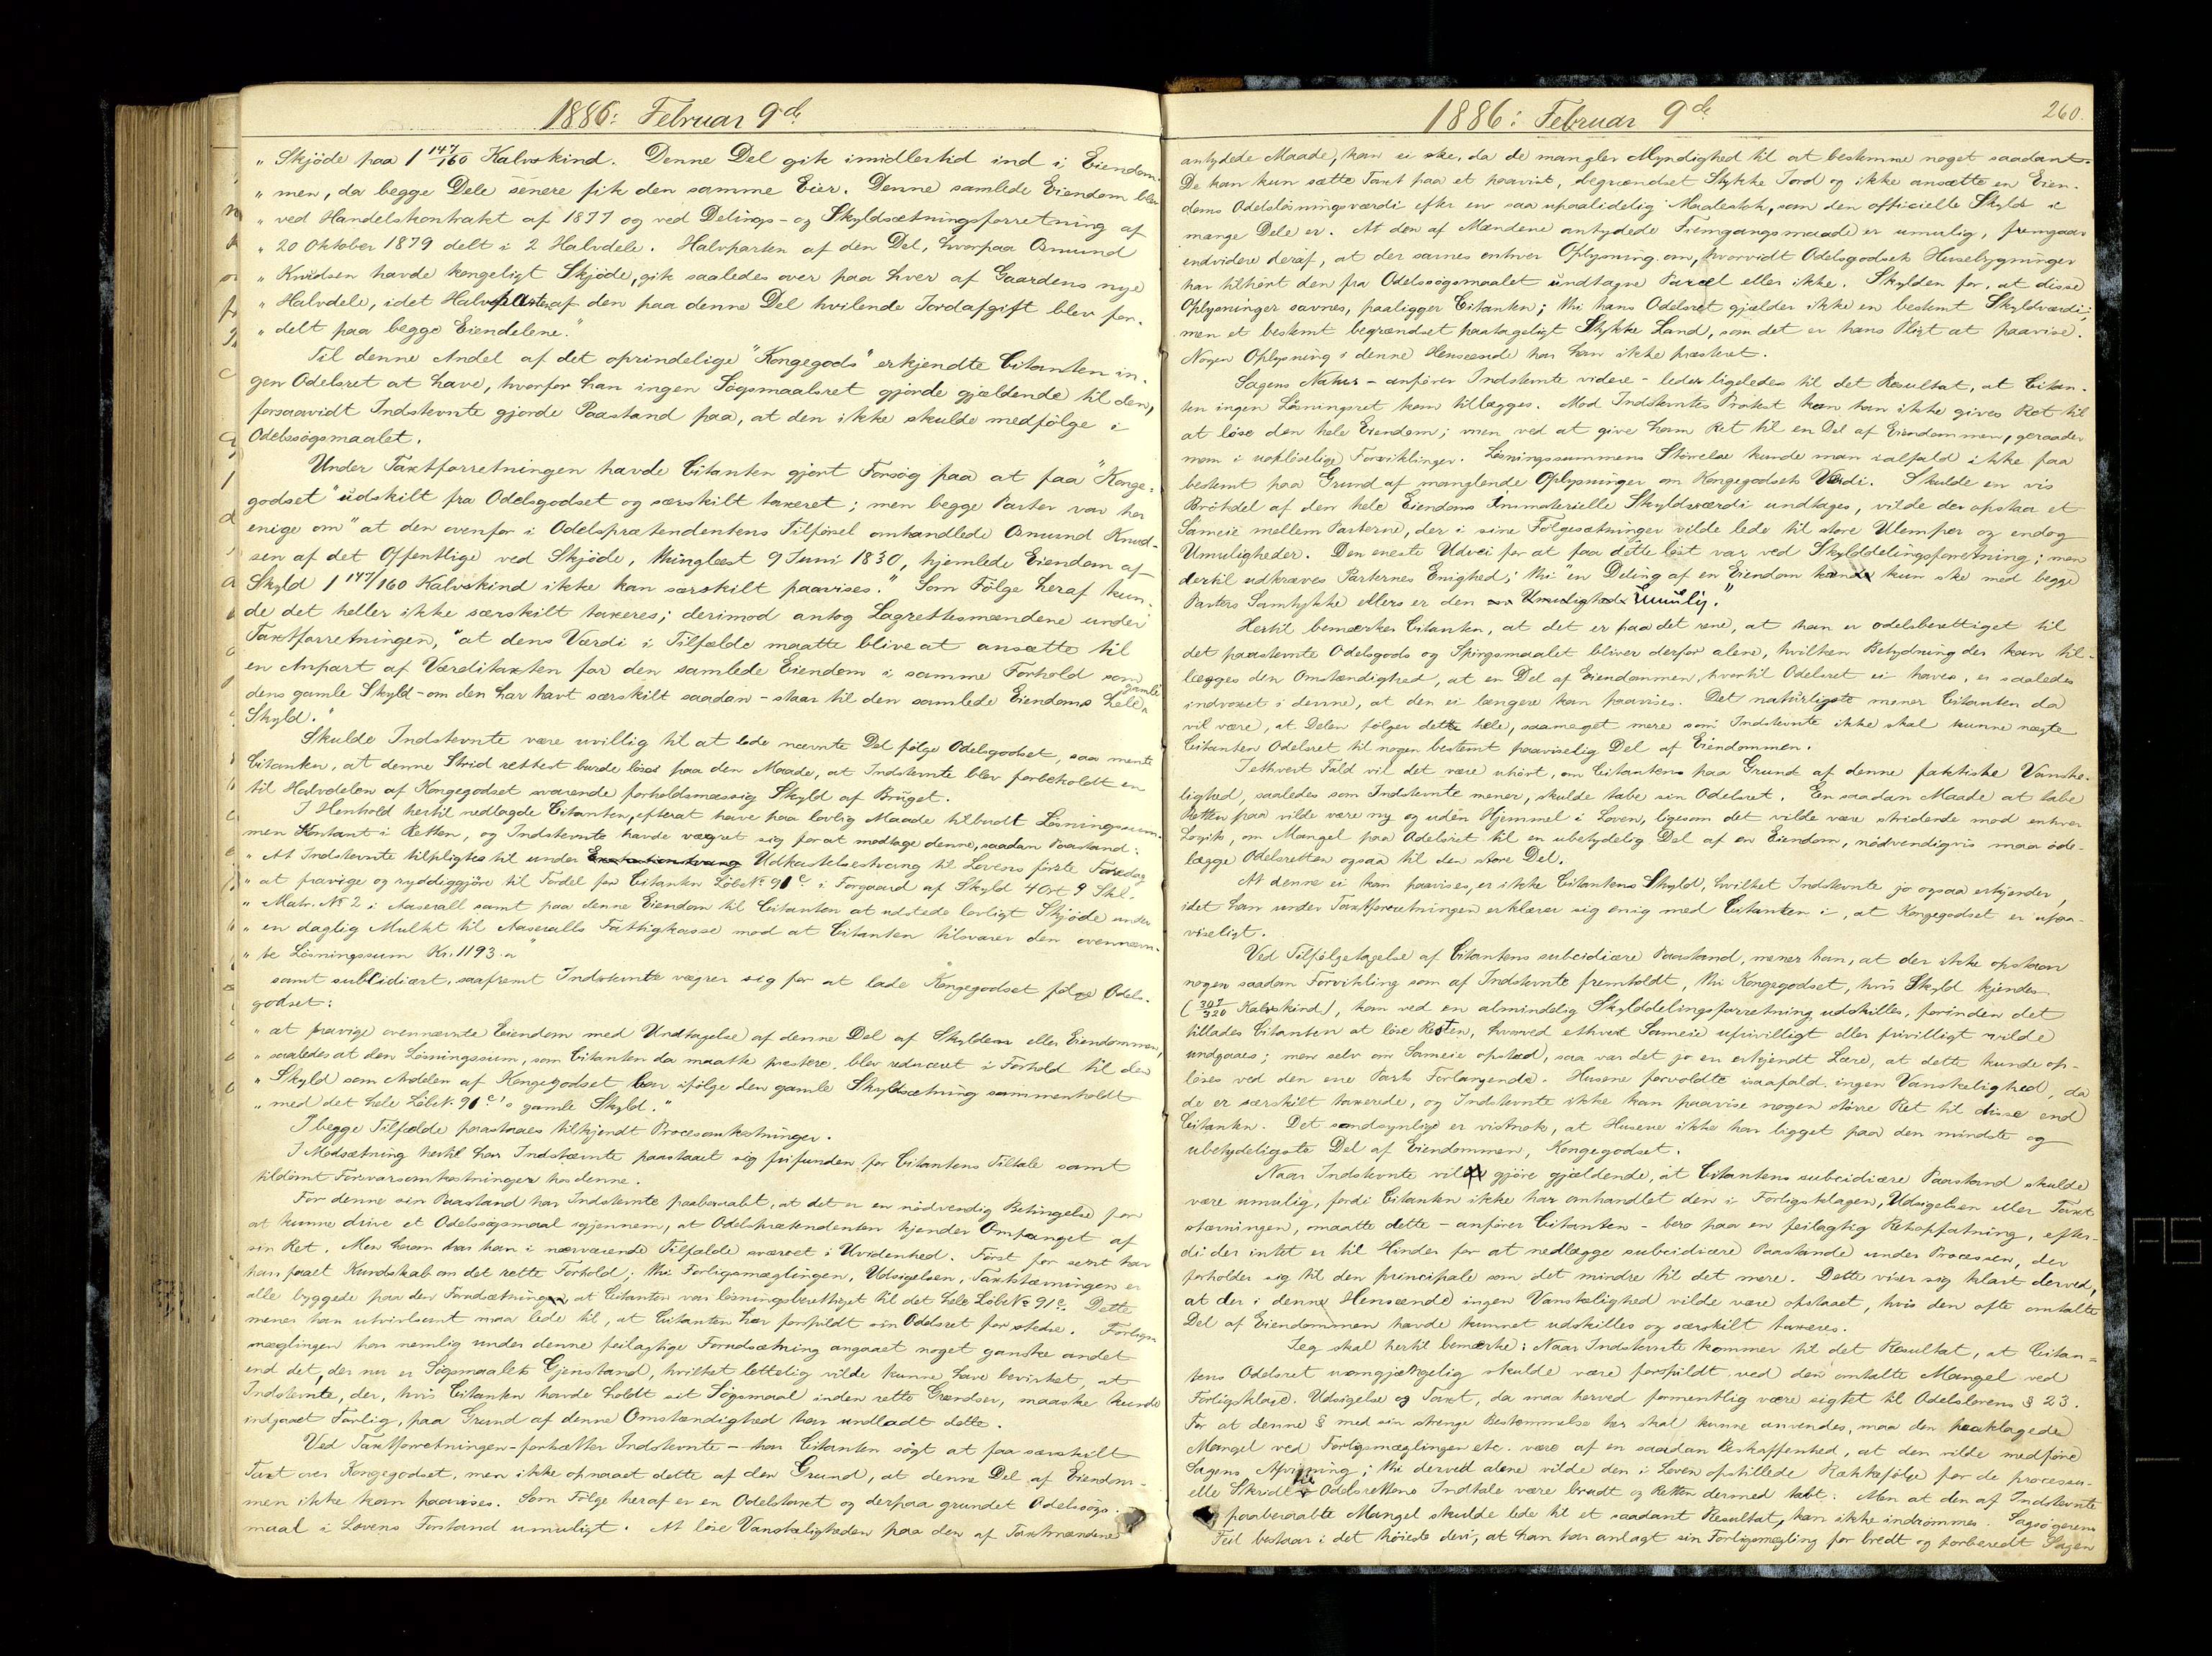 1886: Februar 9de
" Skjöde paa 1 147/160 Kalvskind. Denne Del gik imidlertid ind i Eiendom-
" men, da begge Dele senere fik den samme Eier. Denne samlede Eiendom blev
" ved Handelskontrakt af 1877 og ved Delings- og Skyldsætningsforretning af
" 20 Oktober 1879 delt i 2 Halvdele. Halvparten af den Del, hvorpaa Osmund
" Knudsen havde kongeligt Skjöde, gik saaledes over paa hver af Gaardens nye
" Halvdele, idet Halvparten af den paa denne Del hvilende Jordafgift blev for-
" delt paa begge Eiendelene."
Til denne Andel af det oprindelige "Kongegods" erkjendte Citanten in-
gen Odelsret at have, hvorfor han ingen Sögsmaalsret gjorde gjældende til den,
forsaavidt Indstevnte gjorde Paastand paa, at den ikke skulde medfölge i
Odelssögsmaalet.
Under Taxtforretningen havde Citanten gjort Forsög paa at faa "Konge-
godset" udskilt fra Odelsgodset og særskilt taxeret; men begge Parter var her
enige om "at den ovenfor i Odelsprætendentens Tilförsel omhandlede Osmund Knud-
sen af det Offentlige ved Skjöde, thinglæst 9 Juni 1830, hjemlede Eiendom af
Skyld 1 147/160 Kalvskind ikke kan særskilt paavises." Som Fölge heraf kun-
de det heller ikke særskilt taxeres; derimod antog Lagrettesmændene under
Taxtforretningen, "at dens Værdi i Tilfælde maatte blive at ansætte til
en Anpart af Værditaxten for den samlede Eiendom i samme Forhold som
dens gamle Skyld - om den har havt særskilt saadan - staar til den samlede Eiendoms hele gamle
Skyld."
Skulde Indstevnte være uvillig til at lade nævnte Del fölge Odelsgodset, saa mente
Citanten, at denne Strid rettest burde löses paa den Maade, at Indstevnte blev forbeholdt en
til Halvdelen af Kongegodset svarende forholdsmæssig Skyld af Bruget.
I Henhold hertil nedlagde Citanten, efterat have paa lovlig Maade tilbudt Lösningssum-
men kontant i Retten, og Indstevnte havde vægret sig for at modtage denne, saadan Paastand:
" At Indstevnte tilpligtes til under Udkastelsestvang til Lovens förste Faredag
" at fravige og ryddiggjöre til Fordel for Citanten Löbe No 91c i Forgaard af Skyld 4 Ort 9 Skl.
" Matr. No 2 i Aaserall samt paa denne Eiendom til Citanten at udstede lovligt Skjöde under
" en daglig Mulkt til Aaseralls Fattigkasse mod at Citanten tilsvarer den ovennævn-
" te Lösningssum Kr. 1193."
samt subsidiært, saafremt Indstevnte vægrer sig for at lade Kongegodset fölge Odels-
godset:
" at fravige ovennævnte Eiendom med Undtagelse af denne Del af Skylden eller Eiendommen,
" saaledes at den Lösningssum, som Citanten da maatte præstere, blev reduceret i Forhold til den
" Skyld som Andelen af Kongegodset har ifölge den gamle Skyldsætning sammenholdt
" med det hele Löbe No 91c's gamle Skyld."
I begge Tilfælde paastaaes tilkjendt Procesomkostninger.
I Modsætning hertil har Indstævnte paastaaet sig frifunden for Citantens Tiltale samt
tildömt Forsvarsomkostninger hos denne.
For denne sin Paastand har Indstevnte paaberaabt, at det er en nödvendig Betingelse for
at kunne drive et Odelssögsmaal igjennem, at Odelsprætendenten kjender Omfanget af
sin Ret. Men herom har han i nærværende Tilfælde svævet i Uvidenhed. Först for sent har
han faaet Kundskab om det rette Forhold; thi Forligsmæglingen, Udsigelsen, Taxtstævningen er
alle byggede paa den Forudsætning at Citanten var lösningsberettiget til det hele Löbe No 91c. Dette
mener han utvivlsomt maa lede til, at Citanten har forspildt sin Odelsret for stedse. Forligs-
mæglingen har nemlig under denne feilagtige Forudsætning angaaet noget ganske andet
end det, der nu er Sögsmaalets Gjenstand, hvilket lettelig vilde kunne have bevirket, at
Indstevnte, der, hvis Citanten havde holdt sit Sögsmaal inden rette Grændser, maaske kunde
indgaaet Forlig, paa Grund af denne Omstændighed har undladt dette.
Ved Taxtforretningen - fortsætter Indstevnte - har Citanten sögt at faa særskilt
Taxt over Kongegodset, men ikke opnaaet dette af den Grund, at denne Del af Eiendom-
men ikke kan paavises. Som Fölge heraf er en Odelstaxt og derpaa grundet Odelssögs-
maal i Lovens Forstand umuligt. At löse Vanskeligheden paa den af Taxtmændene
1886: Februar 9de
260.
antydede Maade, kan ei ske, da de mangler Myndighed til at bestemme noget saadant.
De kan kun sætte Taxt paa et paavist, begrændset Stykke Jord og ikke ansætte en Eien-
doms Odelslösningsværdi efter en saa upaalidelig Maalestok, som den officielle Skyld i
mange Dele er. At den af Mændene antydede Fremgangsmaade er umulig, fremgaar
endvidere deraf, at der savnes enhver Oplysning om, hvorvidt Odelsgodsets Husebygninger
har tilhört den fra Odelssögsmaalet undtagne Parcel eller ikke. Skylden for, at disse
Oplysninger savnes, paaligger Citanten; thi hans Odelsret gjælder ikke en bestemt Skyldværdi;
men et bestemt begrændset paatageligt Stykke Land, som det er hans Pligt at paavise.
Nogen Oplysning i denne Henseende har han ikke præsteret.
Sagens Natur - anförer Indstevnte videre - leder ligeledes til det Resultat, at Citan-
ten ingen Lösningsret kan tillægges. Mod Indstevntes Protest kan han ikke gives Ret til
at löse den hele Eiendom; men ved at give ham Ret til en Del af Eiendommen, geraader
man i uoplöselige Forviklinger. Lösningssummens Störrelse kunde man ialfald ikke faa
bestemt paa Grund af manglende Oplysninger om Kongegodsets Værdi. Skulde en vis
Brökdel af den hele Eiendoms immaterielle Skyldværdi undtages, vilde der opstaa et
Sameie mellem Parterne, der i sine Fölgesætninger vilde lede til store Ulemper og endog
Umuligheder. Den eneste Udvei for at faa dette löst var ved Skylddelingsforretning; men
dertil udkræves Parternes Enighed; thi "en Deling af en Eiendom kan kun ske med begge
Parters Samtykke ellers er den umulig."
Hertil bemærker Citanten, at det er paa det rene, at han er odelsberettiget til
det paastevnte Odelsgods og Spörgsmaalet bliver derfor alene, hvilken Betydning der kan til-
lægges den Omstændighed, at en Del af Eiendommen, hvortil Odelsret ei haves, er saaledes
indvoxet i denne, at den ei længere kan paavises. Det naturligste mener Citanten da
vil være, at Delen fölger det hele, saameget mere som Indstevnte ikke skal kunne nægte
Citanten Odelsret til nogen bestemt paaviselig Del af Eiendommen.
I ethvert Fald vil det være uhört, om Citantens paa Grund af denne faktiske Vanske-
lighed, saaledes som Indstevnte mener, skulde tabe sin Odelsret. Een saadan Maade at tabe
Retten paa vilde være ny og uden Hjemmel i Loven, ligesom det vilde være stridende mod enhver
Logik, om Mangel paa Odelsret til en ubetydelig Del af en Eiendom, nödvendigvis maa öde-
lægge Odelsretten ogsaa til den store Del.
At denne ei kan paavises, er ikke Citantens Skyld, hvilket Indstevnte jo ogsaa erkjender,
idet han under Taxtforretningen erklærer sig enig med Citanten i, at Kongegodset er upaa-
viseligt.
Ved Tilfölgetagelse af Citantens subsidiære Paastand, mener han, at der ikke opstaar
nogen saadan Forvikling som af Indstevnte fremholdt, thi Kongegodset, hvis Skyld kjendes
(307/320 Kalvskind), kan ved en almindelig Skylddelingsforretning udskilles, forinden det
tillades Citanten at löse Resten, hvorved ethvert Sameie ufrivilligt eller frivilligt vilde
undgaaes; men selv om Sameie opstod, saa var det jo en erkjendt Lære, at dette kunde op-
löses ved den ene Parts Forlangende. Husene forvoldte isaafald ingen Vanskelighed, da
de er særskilt taxerede, og Indstevnte ikke kan paavise nogen större Ret til disse end
Citanten. Det sandsynlige er vistnok, at Husene ikke har ligget paa den mindste og
ubetydeligste Del af Eiendommen, Kongegodset.
Naar Indstevnte vil gjöre gjældende, at Citantens subsidiære Paastand skulde
være umulig, fordi Citanten ikke har omhandlet den i Forligsklagen, Udsigelsen eller Taxt-
stævningen, maatte dette - anförer Citanten - bero paa en feilagtig Retsopfatning, efter-
di der intet er til Hinder for at nedlægge subsidiære Paastande under Processen, der
forholder sig til den principale som det mindre til det mere. Dette viser sig klart derved,
at der i denne Henseende ingen Vanskelighed vilde være opstaaet, hvis den ofte omtalte
Del af Eiendommen havde kunnet udskilles og særskilt taxeres.
Jeg skal hertil bemærke: Naar Indstevnte kommer til det Resultat, at Citan-
tens Odelsret uomgjængelig skulde være forspildt ved den omtalte Mangel ved
Forligsklage, Udsigelse og Taxt, da maa herved formentlig være sigtet til Odelslovens § 23.
For at denne § med sin strenge Bestemmelse her skal kunne anvendes, maa den paaklagede
Mangel ved Forligsmæglingen etc. være af en saadan Beskaffenhed, at den vilde medföre
Sagens Afvisning; thi derved alene vilde den i Loven opstillede Rækkefölge for de processu-
elle Skridt til Odelsrettens Indtale være brudt og Retten dermed tabt. Men at den af Indstevnte
paaberaabte Mangel skulde lede til et saadant Resultat, kan ikke indrömmes. Sagsögerens
Feil bestaar i det höieste deri, at han har anlagt sin Forligsmægling for bredt og forberedt Sagen